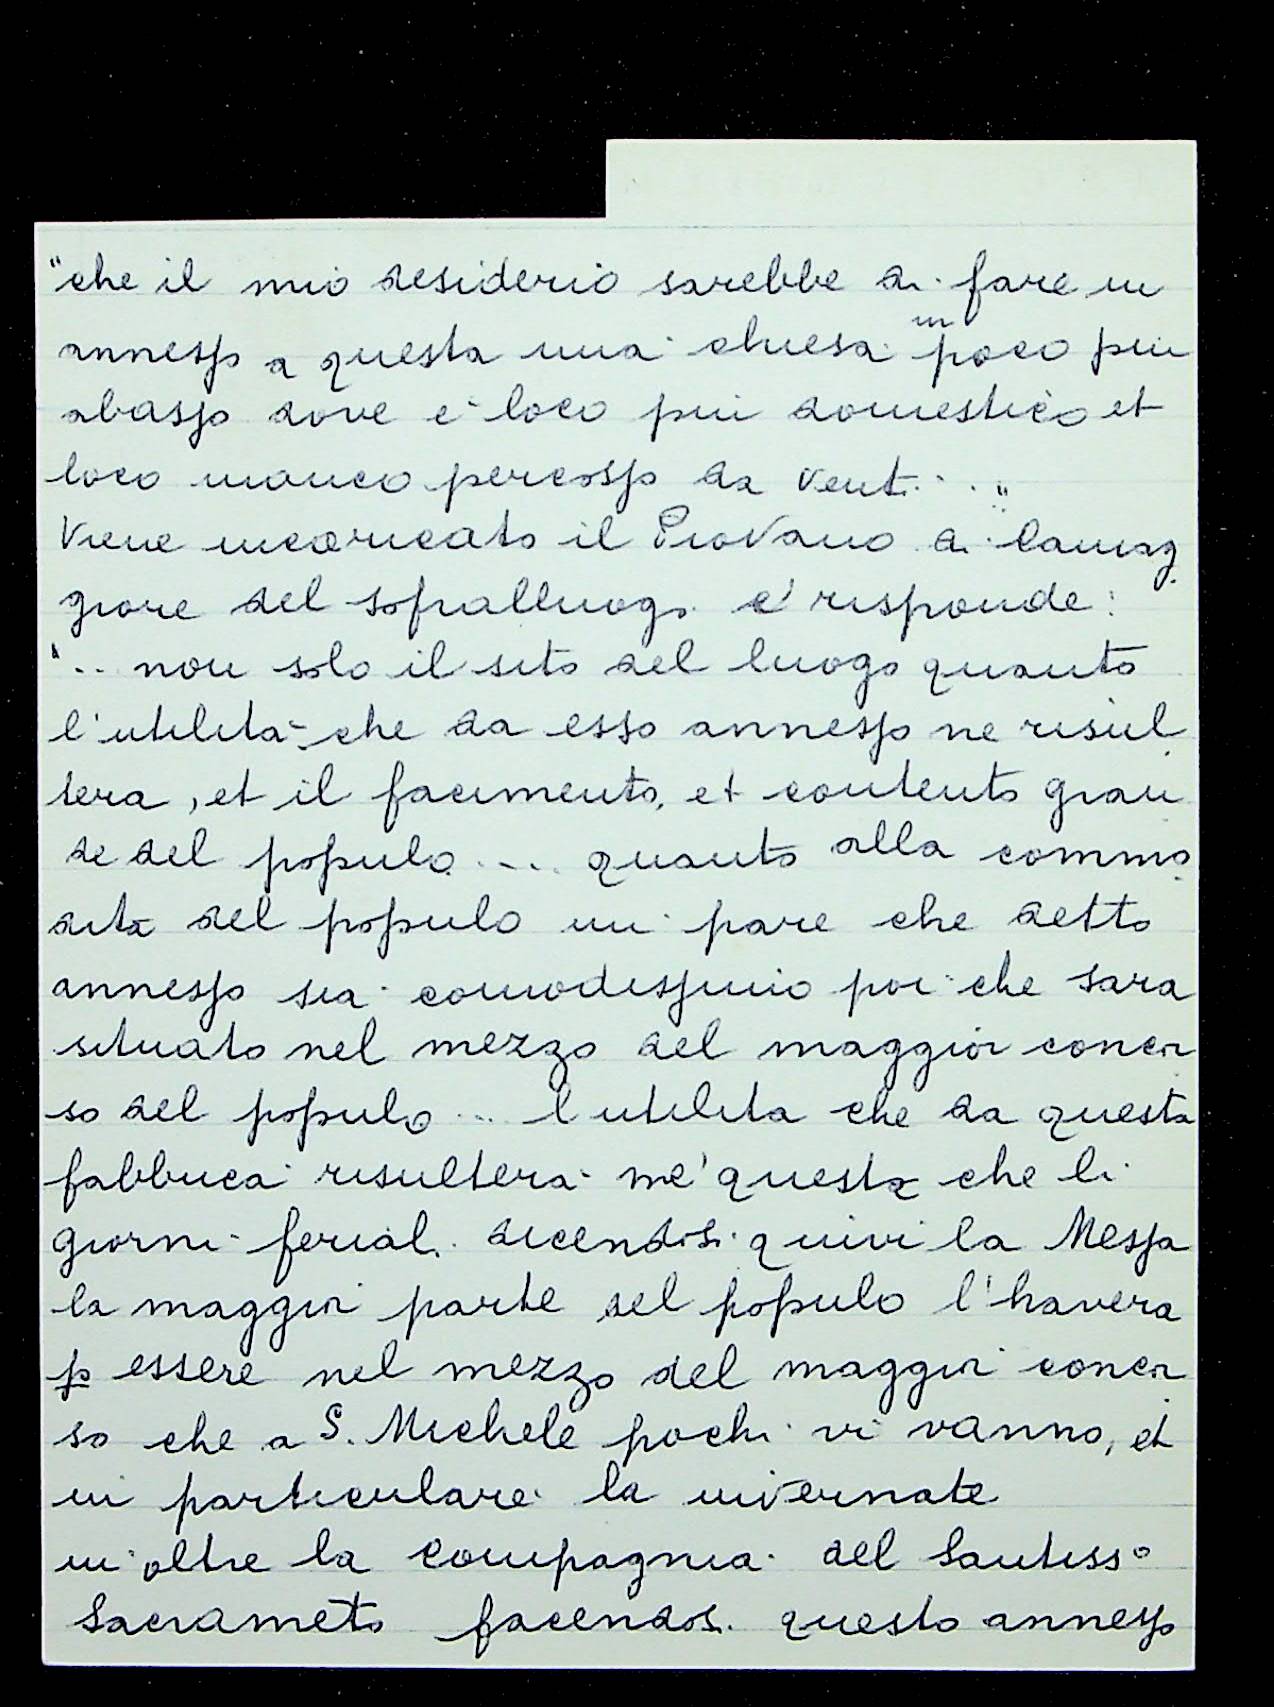 "che il mio desiderio sarebbe di fare un
annesso a questa una chiesa un poco più
abasso dove è loco più domestico et
loco manco percosso da venti . . ."
Viene incaricato il Piovano di Camag
giore del sopralluogo e risponde:
"... non solo il sito del luogo quanto
l'utilità che da esso annesso ne risul
terà, et il facimento, et contento gran
de del populo ... quanto alla commo
dità del populo mi pare che detto
annesso sia comodissimo poi che sarà
situato nel mezzo del maggior concor
so del populo ... l utilità che da questa
fabbrica risulterà mé questa che li
giorni feriali dicendosi quivi la Messa
la maggior parte del populo l'haverà
p essere nel mezzo del maggior concor
so che a S. Michele pochi vi vanno, et
in particulare la invernate
in oltre la Compagnia del Santiss°
Sacrameto facendosi questo annesso